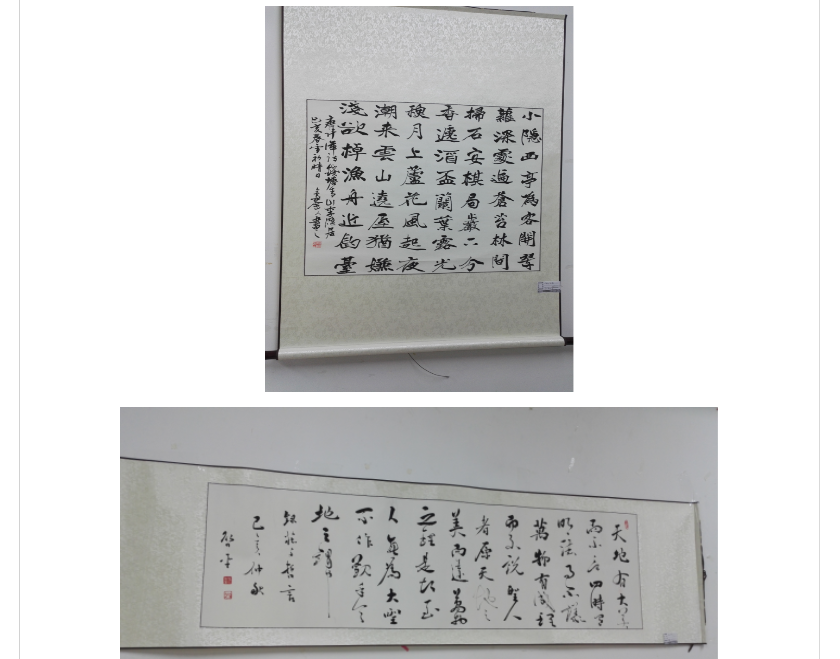 小隱西亭為客開翠
蘿深處遍蒼苔林間
掃石安棋局巖下分
泉遞酒盃蘭葉露光
秋月上蘆花風起夜
潮來雲山遶屋猶嫌
淺欲棹漁舟近釣臺
唐許渾詩
己亥春
天地有大美
而不言四時有
明法而不議
萬物有成理
而不說聖人
者原天地之
美而達萬物
之理是故至
人無為大聖
不作觀於天
地之謂
錄莊子哲言
己亥仲秋